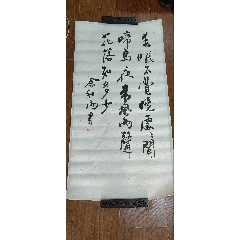 春眠不覺曉處々聞
啼鳥夜来風雨聲
花落知多少